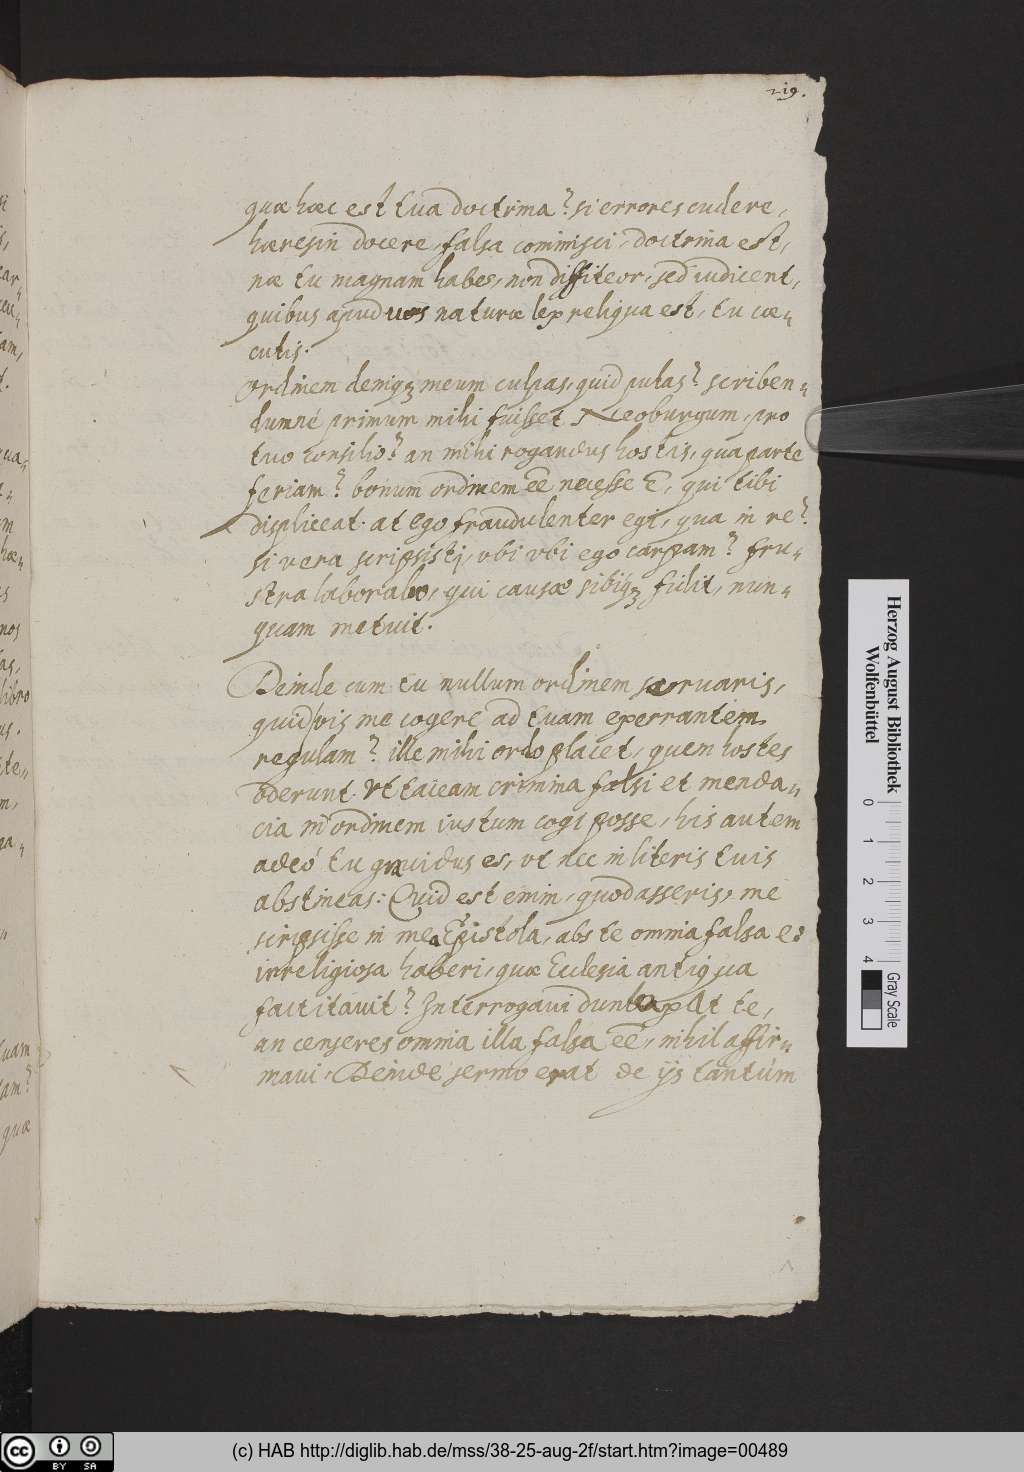 219.
quæ hæc est tua doctrina? si errores cudere,
hæresin docere, falsa comminisci, doctrina est,
næ tu magnam habes, non diffiteor, sed iudicent,
quibus apud uos naturæ lex reliqua est, tu cæ-
cutis.
Ordinem deniqꝫ meum culpas, quid putas? scriben-
dumné primum mihi fuisset Neoburgum, pro
tuo consilio? an mihi rogandus hostis, qua parte
feriam? bonum ordinem eē necesse ē, qui tibi
displiceat. at ego fraudulenter egi, qua in re?
si vera scripsisti, vbi vbi ego carpam? fru-
stra laborabo, qui causæ sibiqꝫ fidit, nun-
quam metuit.
Deinde cum tu nullum ordinem seruaris,
quid vis me cogere ad tuam exerrantem
regulam? ille mihi ordo placet, quem hostes
oderunt. Vt taceam crimina falsi et menda-
cia in ordinem iustum cogi posse, his autem
adeó tu grauidus es, vt nec in literis tuis
abstineas: Quid est enim, quod asseris, me
scripsisse in mea Epistola, abs te omnia falsa et
irreligiosa haberi, quæ Ecclesia antiqua
factitauit? Interrogaui duntaxat te,
an censeres omnia illa falsa eē, nihil affir-
maui, Deinde sermo erat de ijs tantùm
Herzog August Bibliothek
Wolfenbüttel
0 1 2 3 4
Gray Scale
cc BY SA
(c) HAB http://diglib.hab.de/mss/38-25-aug-2f/start.htm?image=00489